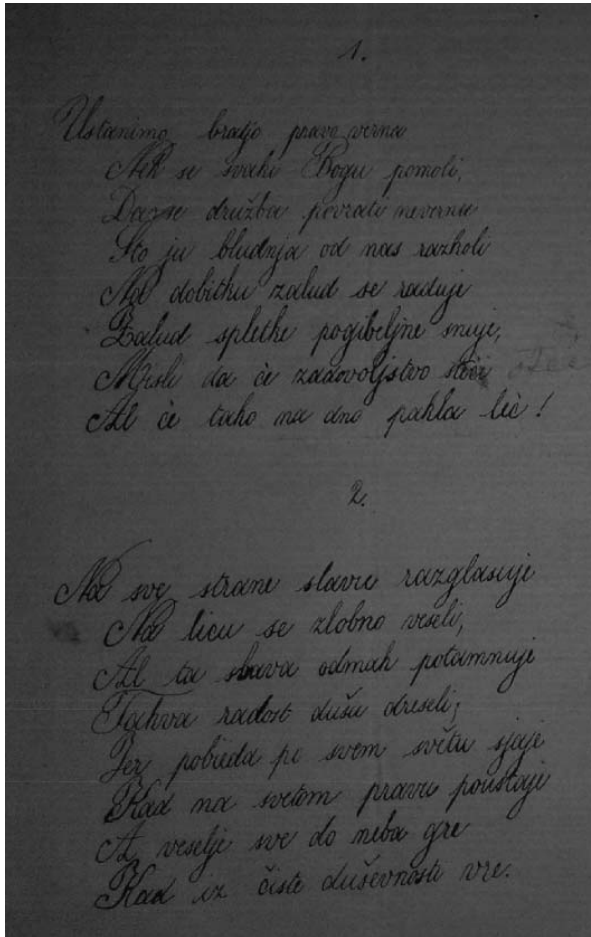 1.
Ustanimo bratjo pravoverna
Nek se svaki Bogu pomoli,
Da se družba povrati neverna
Što ju bludnja od nas razkoli
Na dobitku zalud se raduje
Zalud spletke pogibeljne snuje,
Misli da će zadovoljstvo steći
Al će tako na dno pakla leć!
2.
Na sve strane slavu razglasuje
Na licu se zlobno veseli,
Al ta slava odmah potamnuje
Takva radost dušu dreseli;
Jer pobieda po svem světu sjaje
Kad na svetom pravu poustaje
A veselje sve do neba gre
Kad iz čiste duševnosti vre.